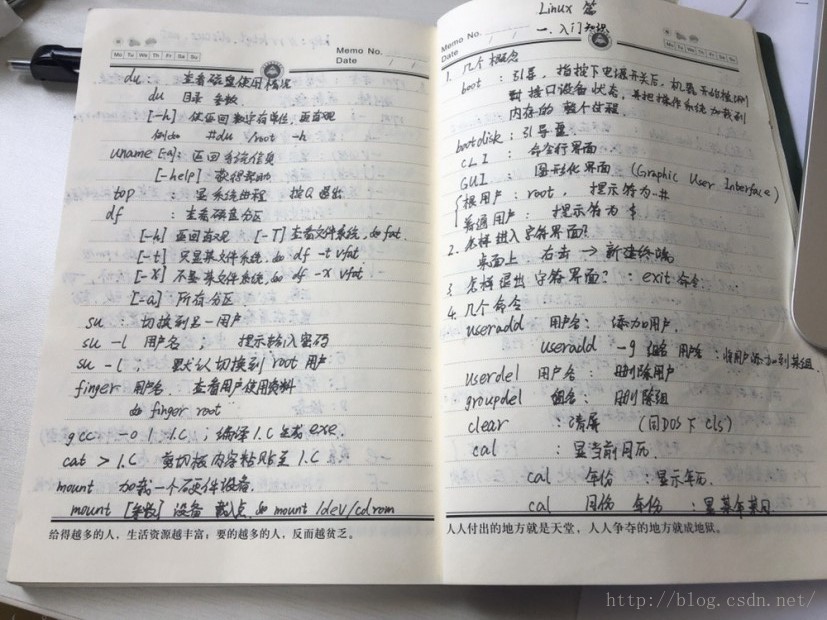 Memo No.
Date / /
Mo Tu We Th Fr Sa Su
du : 查看磁盘使用情况
du 目录 参数
[-h] 使返回数没有单位,更直观
例如 #du /root -h
uname [-a]: 返回系统信息
[-help] 获得帮助
top : 显系统进程 按Q退出
df : 查看磁盘分区
[-h] 返回直观 [-T] 查看文件系统, 如 fat.
[-t] 只显某文件系统, 如 df -t vfat
[-x] 不显某文件系统, 如 df -x vfat
[-a] 所有分区
su : 切换到另一用户
su -l 用户名 ; 提示输入密码
su -l ; 默认切换到 root 用户
finger 用户名. 查看用户使用资料
如 finger root
gcc -o 1 1.C ; 编译1.C生成exe.
cat > 1.C 剪切板内容粘贴至 1.C
mount 加载一个硬件设备.
mount [参数] 设备 载入点. 如 mount /dev/cdrom
给得越多的人,生活资源越丰富;要的越多的人,反而越贫乏。
Linux 篇
Memo No.
Date / /
一. 入门知识
Mo Tu We Th Fr Sa Su
1. 几个概念
boot : 引导, 指按下电源开关后, 机器开始检测
对接口设备状态, 并把操作系统加载到
内存的整个过程.
bootdisk : 引导盘
CLI : 命令行界面
GUI : 图形化界面 (Graphic User Interface)
根用户 : root, 提示符为 #
普通用户 : 提示符为 $
2. 怎样进入字符界面?
桌面上 右击 → 新建终端
3. 怎样退出字符界面? : exit 命令
4. 几个命令
useradd 用户名 : 添加用户.
useradd -g 组名 用户名 : 将用户添加到某组.
userdel 用户名 : 删除用户
groupdel 组名 : 删除组
clear : 清屏 (同DOS下 cls)
cal : 显当前月历.
cal 年份 : 显示年历.
cal 月份 年份 : 显某年某月
人人付出的地方就是天堂,人人争夺的地方就成地狱。
http://blog.csdn.net/